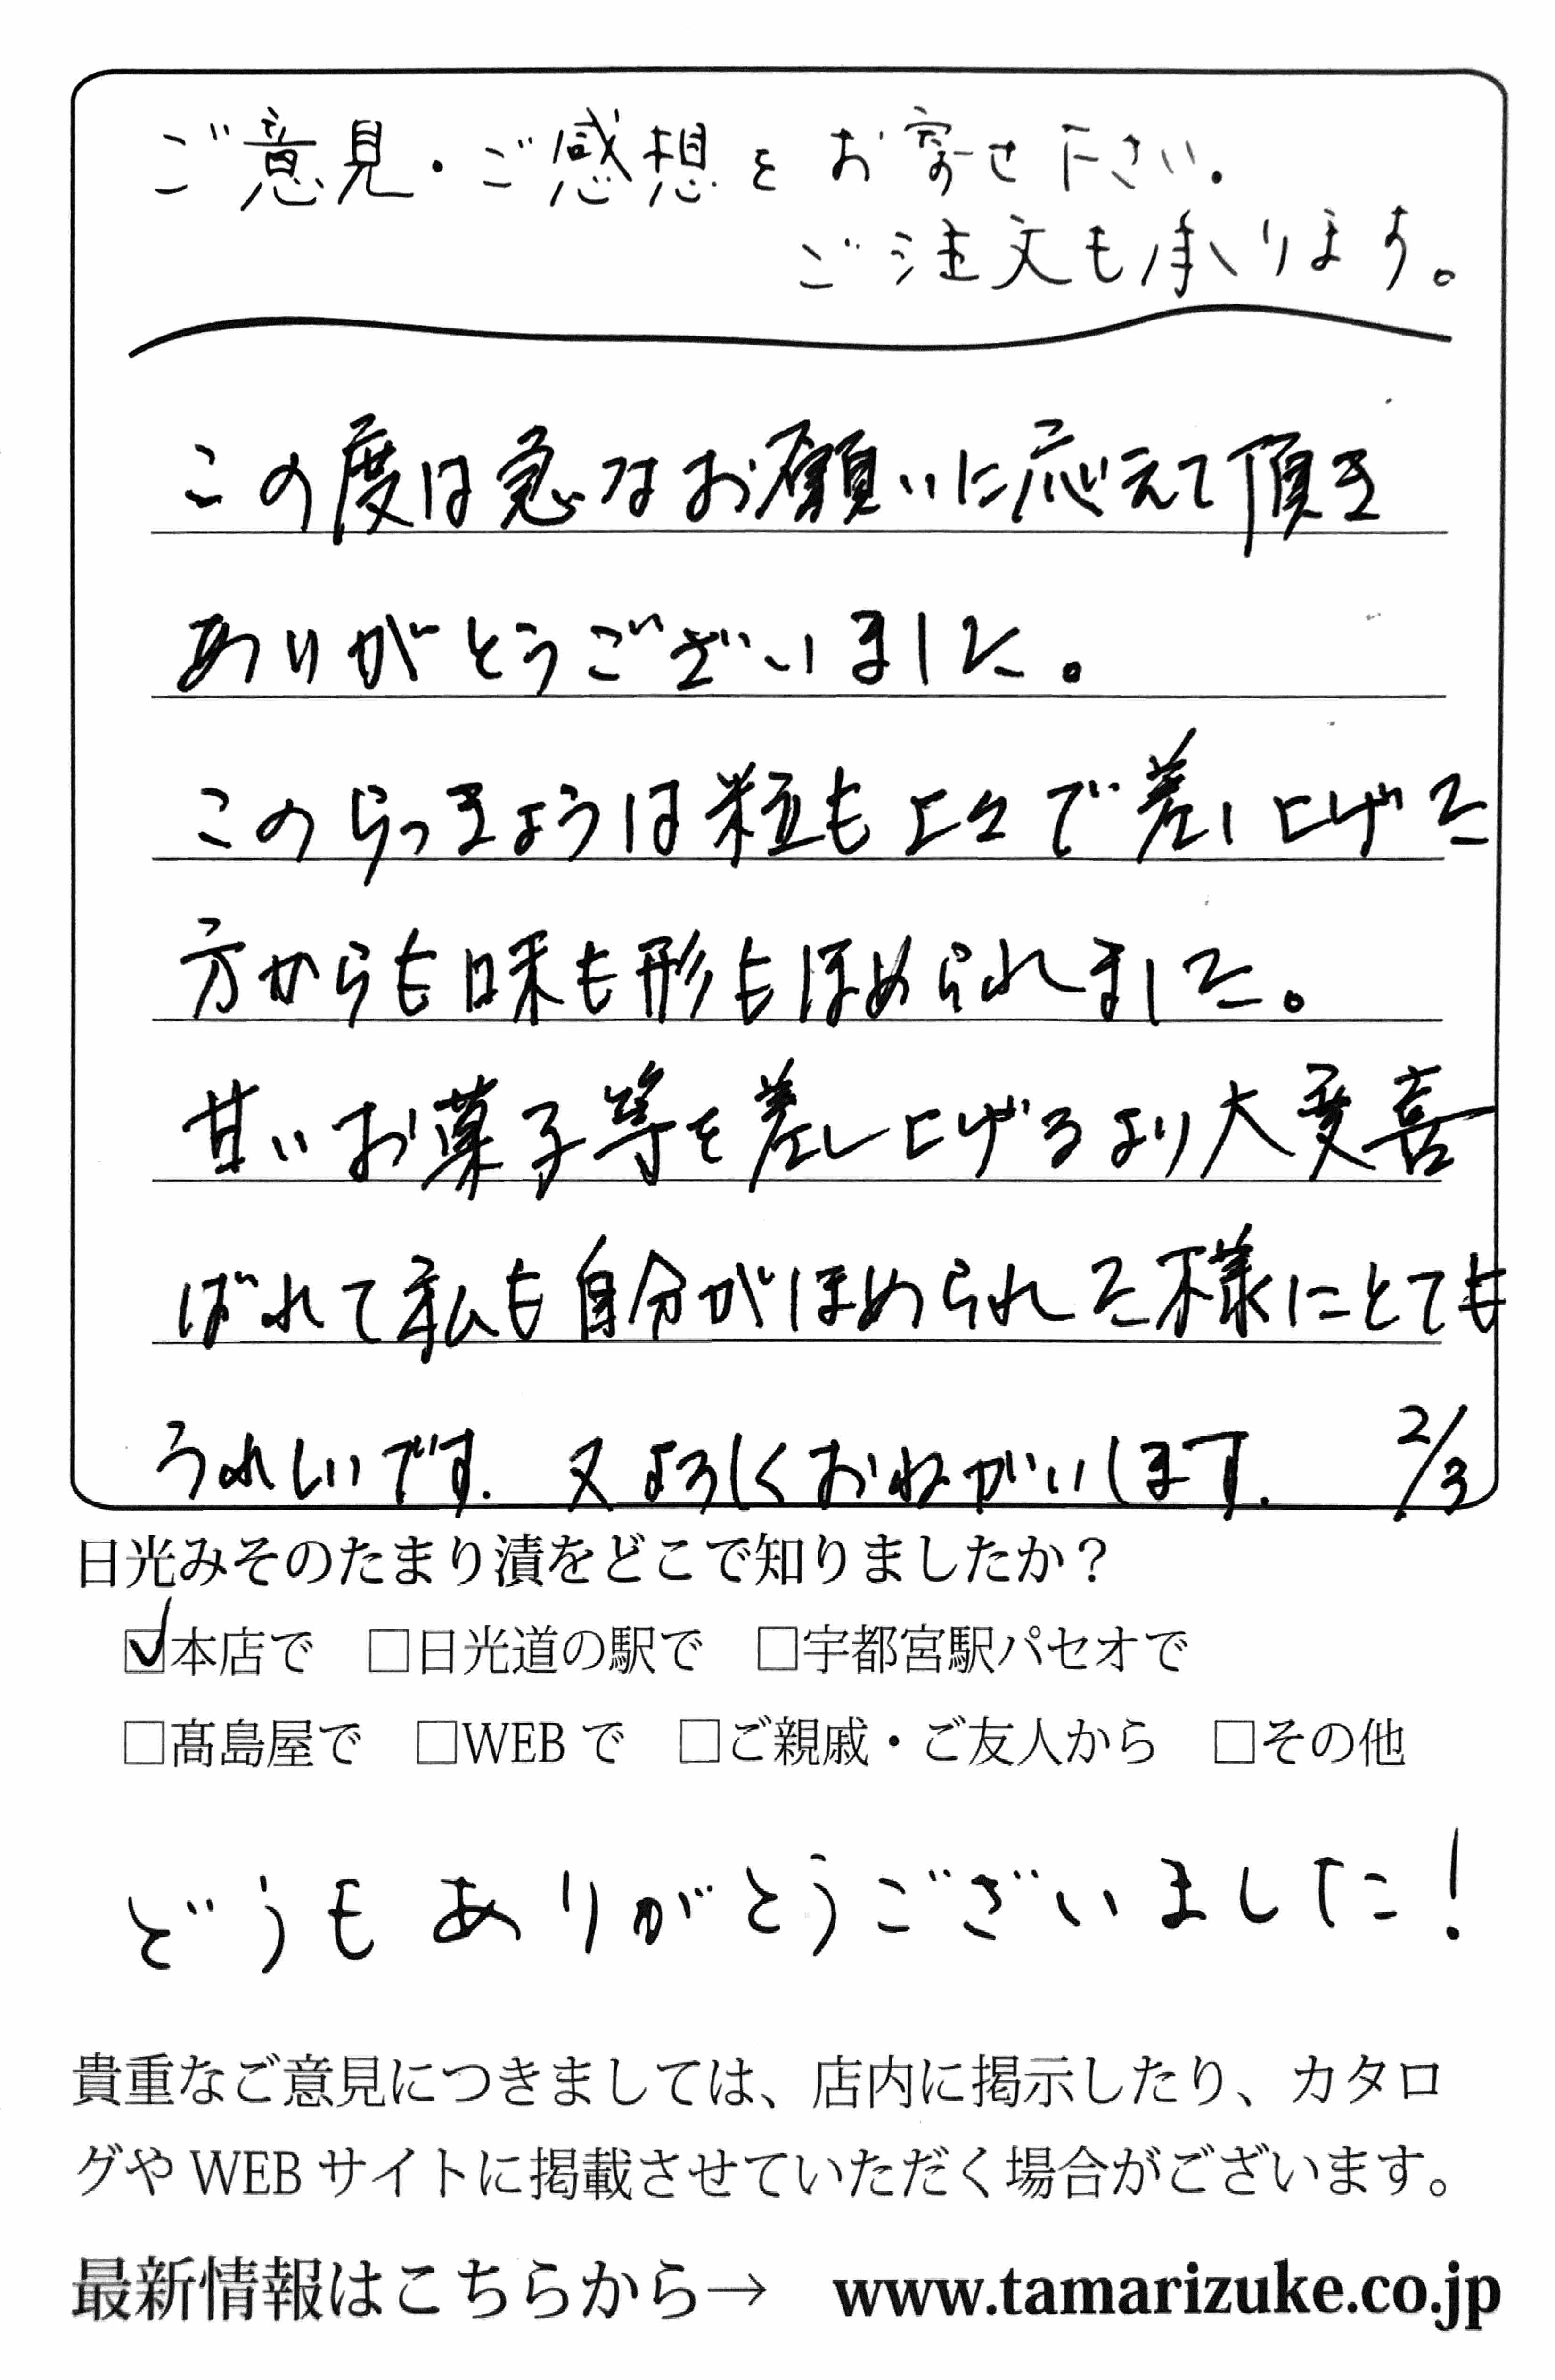 ご意見・ご感想をお寄せ下さい.
ご注文も承ります。
この度は急なお願いに応えて頂き
ありがとうございました。
このらっきょうは粒も上々で差し上げた
方からも味も形もほめられました。
甘いお菓子等を差し上げるより大変喜
ばれて私も自分がほめられた様にとても
うれしいです. 又よろしくおねがいします. 2/3
日光みそのたまり漬をどこで知りましたか？
☑本店で □日光道の駅で □宇都宮駅パセオで
□髙島屋で □WEBで □ご親戚・ご友人から □その他
どうもありがとうございました！
貴重なご意見につきましては、店内に掲示したり、カタロ
グやWEBサイトに掲載させていただく場合がございます。
最新情報はこちらから→ www.tamarizuke.co.jp